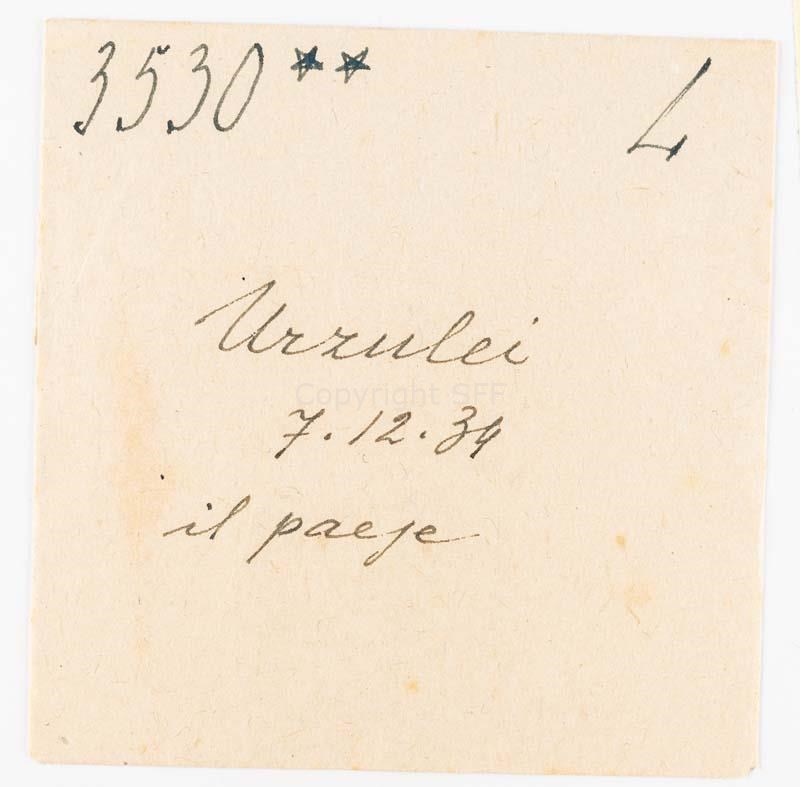 3530** L
Urzulei
Copyright SFF
7.12.34
il paese